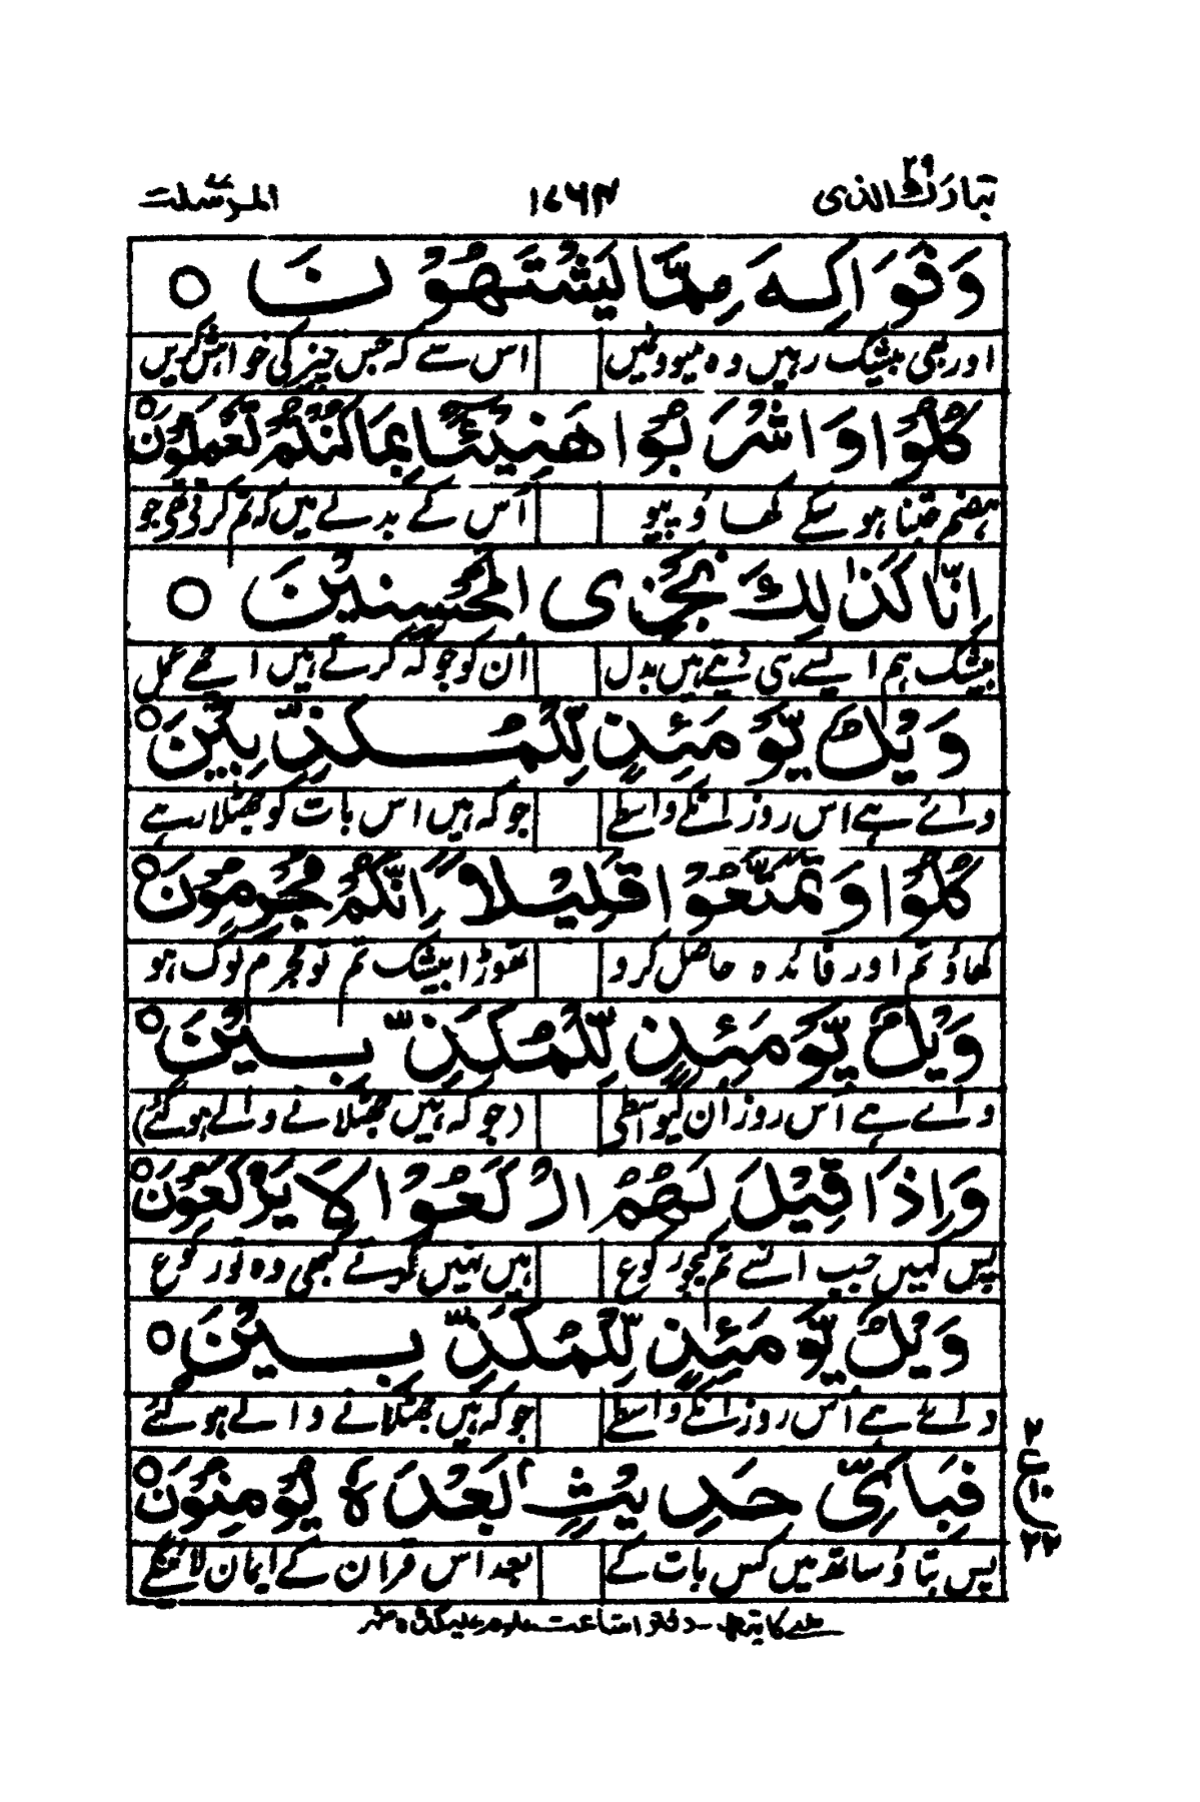 تبارك الذی ۲۹ ۱۷۶۴ المرسلت ۷۷
وَفَوَاكِهَ مِمَّا يَشْتَهُوْنَ ۝
اور بھی بیشک رہیں وہ میووں میں اس سے کہ جس چیز کی خواہش کریں
كُلُوْا وَاشْرَبُوْا هَنِيْٓئًا بِمَا كُنْتُمْ تَعْمَلُوْنَ ۝
ہضم جتنا ہو سکے کھاؤ پیو اُس کے بدلے میں کہ تم کرتے تھے جو
اِنَّا كَذٰلِكَ نَجْزِى الْمُحْسِنِيْنَ ۝
بیشک ہم ایسے ہی دیتے ہیں بدل اُن کو جو کہ کرتے ہیں اچھے عمل
وَيْلٌ يَّوْمَئِذٍ لِّلْمُكَذِّبِيْنَ ۝
وائے ہے اس روز انکے واسطے جو کہ ہیں اس بات کو جھٹلا رہے
كُلُوْا وَتَمَتَّعُوْا قَلِيْلًا اِنَّكُمْ مُّجْرِمُوْنَ ۝
کھاؤ تم اور فائدہ حاصل کرو تھوڑا بیشک تم تو مجرم لوگ ہو
وَيْلٌ يَّوْمَئِذٍ لِّلْمُكَذِّبِيْنَ ۝
وائے ہے اُس روز ان کیواسطے (جو کہ ہیں جھٹلانے والے ہو گئے)
وَاِذَا قِيْلَ لَهُمُ ارْكَعُوْا لَا يَرْكَعُوْنَ ۝
پس کہیں جب انسے تم کیجو رکوع ہیں نہیں کرتے کبھی وہ تو رکوع
وَيْلٌ يَّوْمَئِذٍ لِّلْمُكَذِّبِيْنَ ۝
وائے ہے اُس روز انکے واسطے جو کہ ہیں جھٹلانے والے ہو گئے
فَبِاَىِّ حَدِيْثٍۭ بَعْدَهٗ يُؤْمِنُوْنَ ۝
۲ ع ۱۰ ۲۲
پس بتاؤ ساتھ میں کس بات کے بعد اس قرآن کے ایمان لائینگے
ملنے کا پتہ دفتر اشاعت علیگڈہ